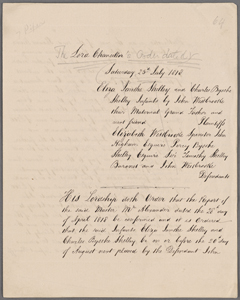 The Lord Chancellor
Saturday 25th July 1818
Eliza Ianthe Shelley and Charles Bysshe
Shelley Infants by John Westbrooke
their Maternal Grand Father and
next friend Plaintiffs
Elizabeth Westbrooke Spinster John
Higham Esquire Percy Bysshe
Shelley Esquire Sir Timothy Shelley
Baronet and John Westbrooke
Defendants
His Lordship doth Order that the Report of
the said Master Mr Alexander dated the 28th day
of April 1818 be confirmed and it is Ordered
that the said Infants Eliza Ianthe Shelley and
Charles Bysshe Shelley be on or before the day
of August next placed by the Defendant John